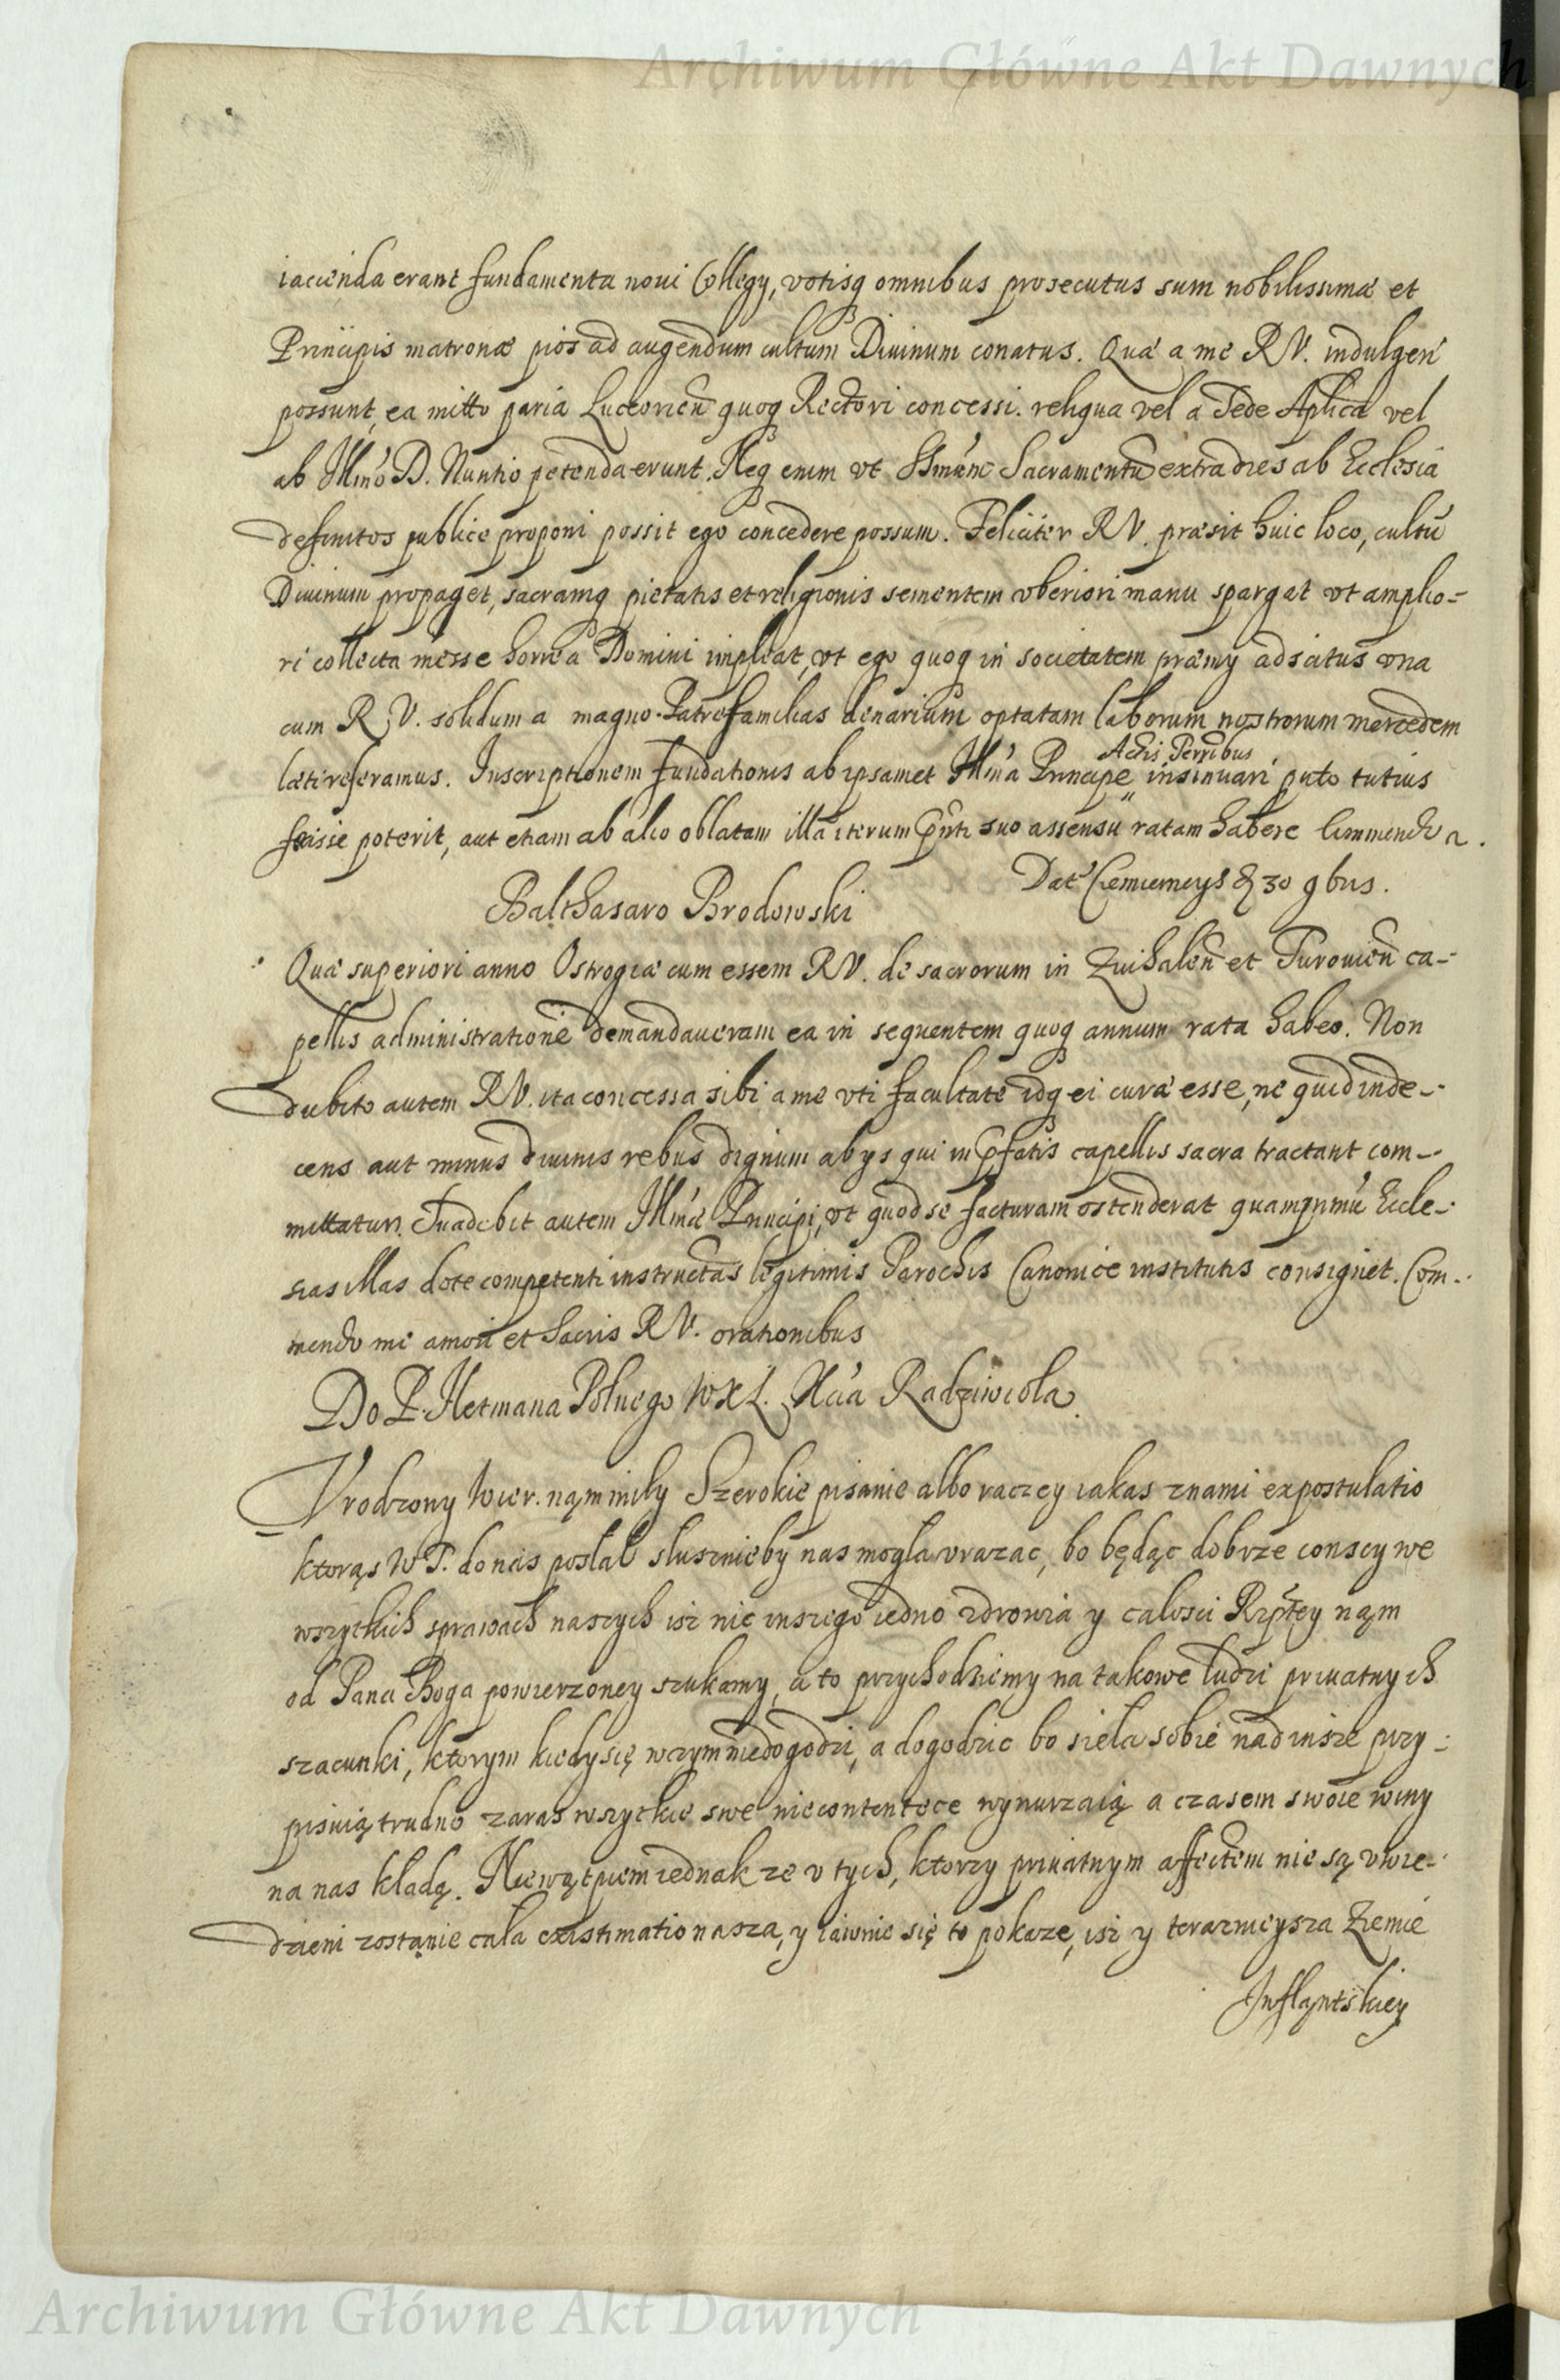 Archiwum Główne Akt Dawnych
iacienda erant fundamenta noui Collegy, votisq omnibus prosecutus sum nobilissimæ et
Principis matronæ pios ad augendum cultum Diuinum conatus. Quæ a me R V. indulgeri
possunt, ea mitto paria Luceorien quoq Rectori concessi. reliqua vel a Sede Aplica vel
ab Illmo D. Nuntio petenda erunt. Neq enim vt SSmum Sacramentu extra dies ab Ecclesia
definitos publice proponi possit ego concedere possum. Feliciter R V. præsit huic loco, cultu
Diuinum propaget, sacramq pietatis et religionis sementem vberiori manu spargat vt amplio-
ri collecta messe horrea Domini impleat, vt ego quoq in societatem præmy adscitus vna
cum R V. solidum a magno Patrefamilias denarium optatam laborum nostrorum mercedem
læti referamus. Inscriptionem fundationis ab ipsamet Illma Principe insinuari puto tutius
Actis Terribus
fuisse poterit, aut etiam ab alio oblatam illa iterum pnti suo assensu ratam habere Commendo a.
Dat 30 9bris.
Balthasaro Brodowski
Quæ superiori anno Ostrogiæ cum essem R V. de sacrorum in Zuihalen et Turouien ca-
pellis administratione demandaueram ea in sequentem quoq annum rata habeo. Non
dubito autem R V. ita concessa sibi a me vti facultate idq ei curæ esse, ne quid inde-
cens aut minus diuinis rebus dignum ab ys qui in pfatis capellis sacra tractant com-
mittatur. Suadebit autem Illmæ Principi, vt quod se facturam ostenderat quamprimu Eccle-
sias illas dote competenti instructas legitimis Parochis Canonice institutis consignet. Com-
mendo me amori et Sacris R V. orationibus
Do P. Hetmana Polnego W X L. Xcia Radziwiola
Vrodzony Wier. nąm miły Szerokie pisanie albo raczey iakas znami expostulatio
ktorąs W T. do nas posłał slusznieby nas mogla vrazac, bo będąc dobrze conscy we
wszytkich sprawach naszych isz nic inszego iedno zdrowia y calosci Rzptey nąm
od Pana Boga powierzoney szukamy, a to przychodziemy na takowe ludzi priuatnych
szacunki, ktorym kiedy się wczym niedogodzi, a dogodzic bo siela sobie nad insze przy-
pisuią trudno zaras wszytkie swe niecontentece wynurzaią a czasem swoie winy
na nas kładą. Niewątpiem iednak ze v tych, ktorzy priuatnym affectem nie są vwie-
dzieni zostąnie cała existimatio nasza, y iawnie się to pokaze, isz y teraznieysza Ziemie
Inflantskiey
Archiwum Główne Akt Dawnych